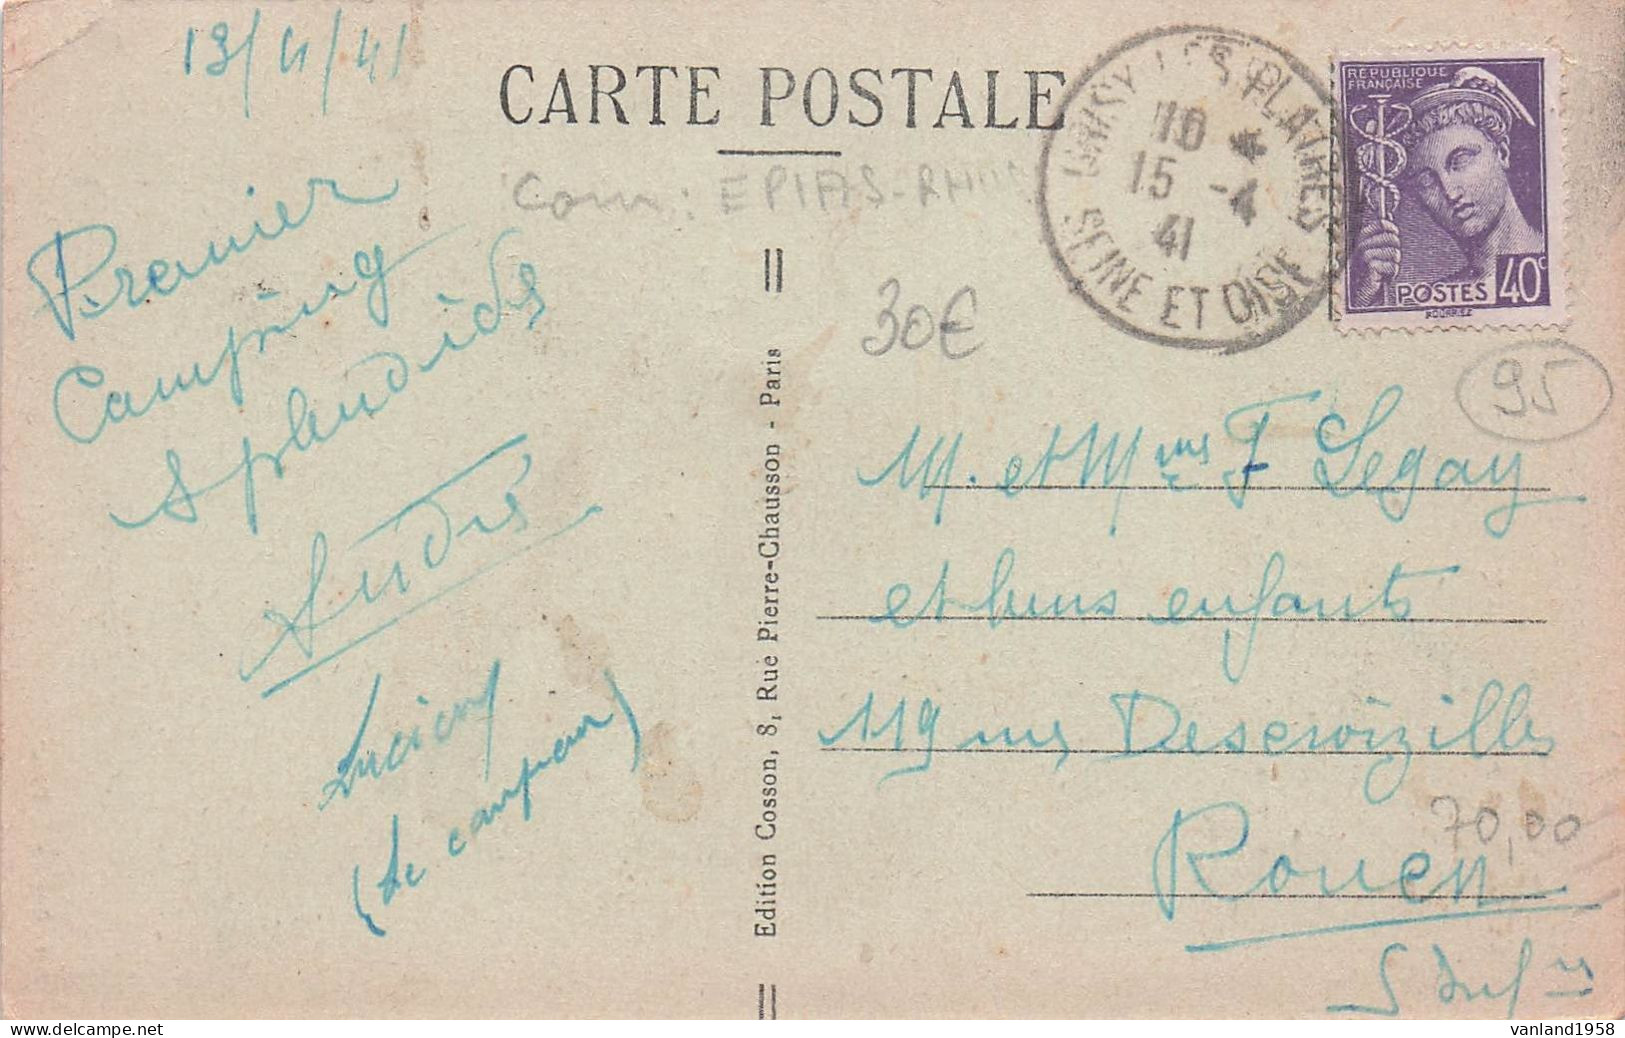 13/4/41
CARTE POSTALE
Com: EPIAIS-RHUS
Premier
Camping
Splendide
André
Lucien
(Le campeur)
Edition Cosson, 8, Rue Pierre-Chausson - Paris
GRISY LES PLATRES
10 *
15 -4
41
SEINE ET OISE
REPUBLIQUE
FRANÇAISE
POSTES 40c
30€
95
M. et Mme F Legay
et leurs enfants
119 rue Descroizilles
70,00
Rouen
S Infre
vanland1958